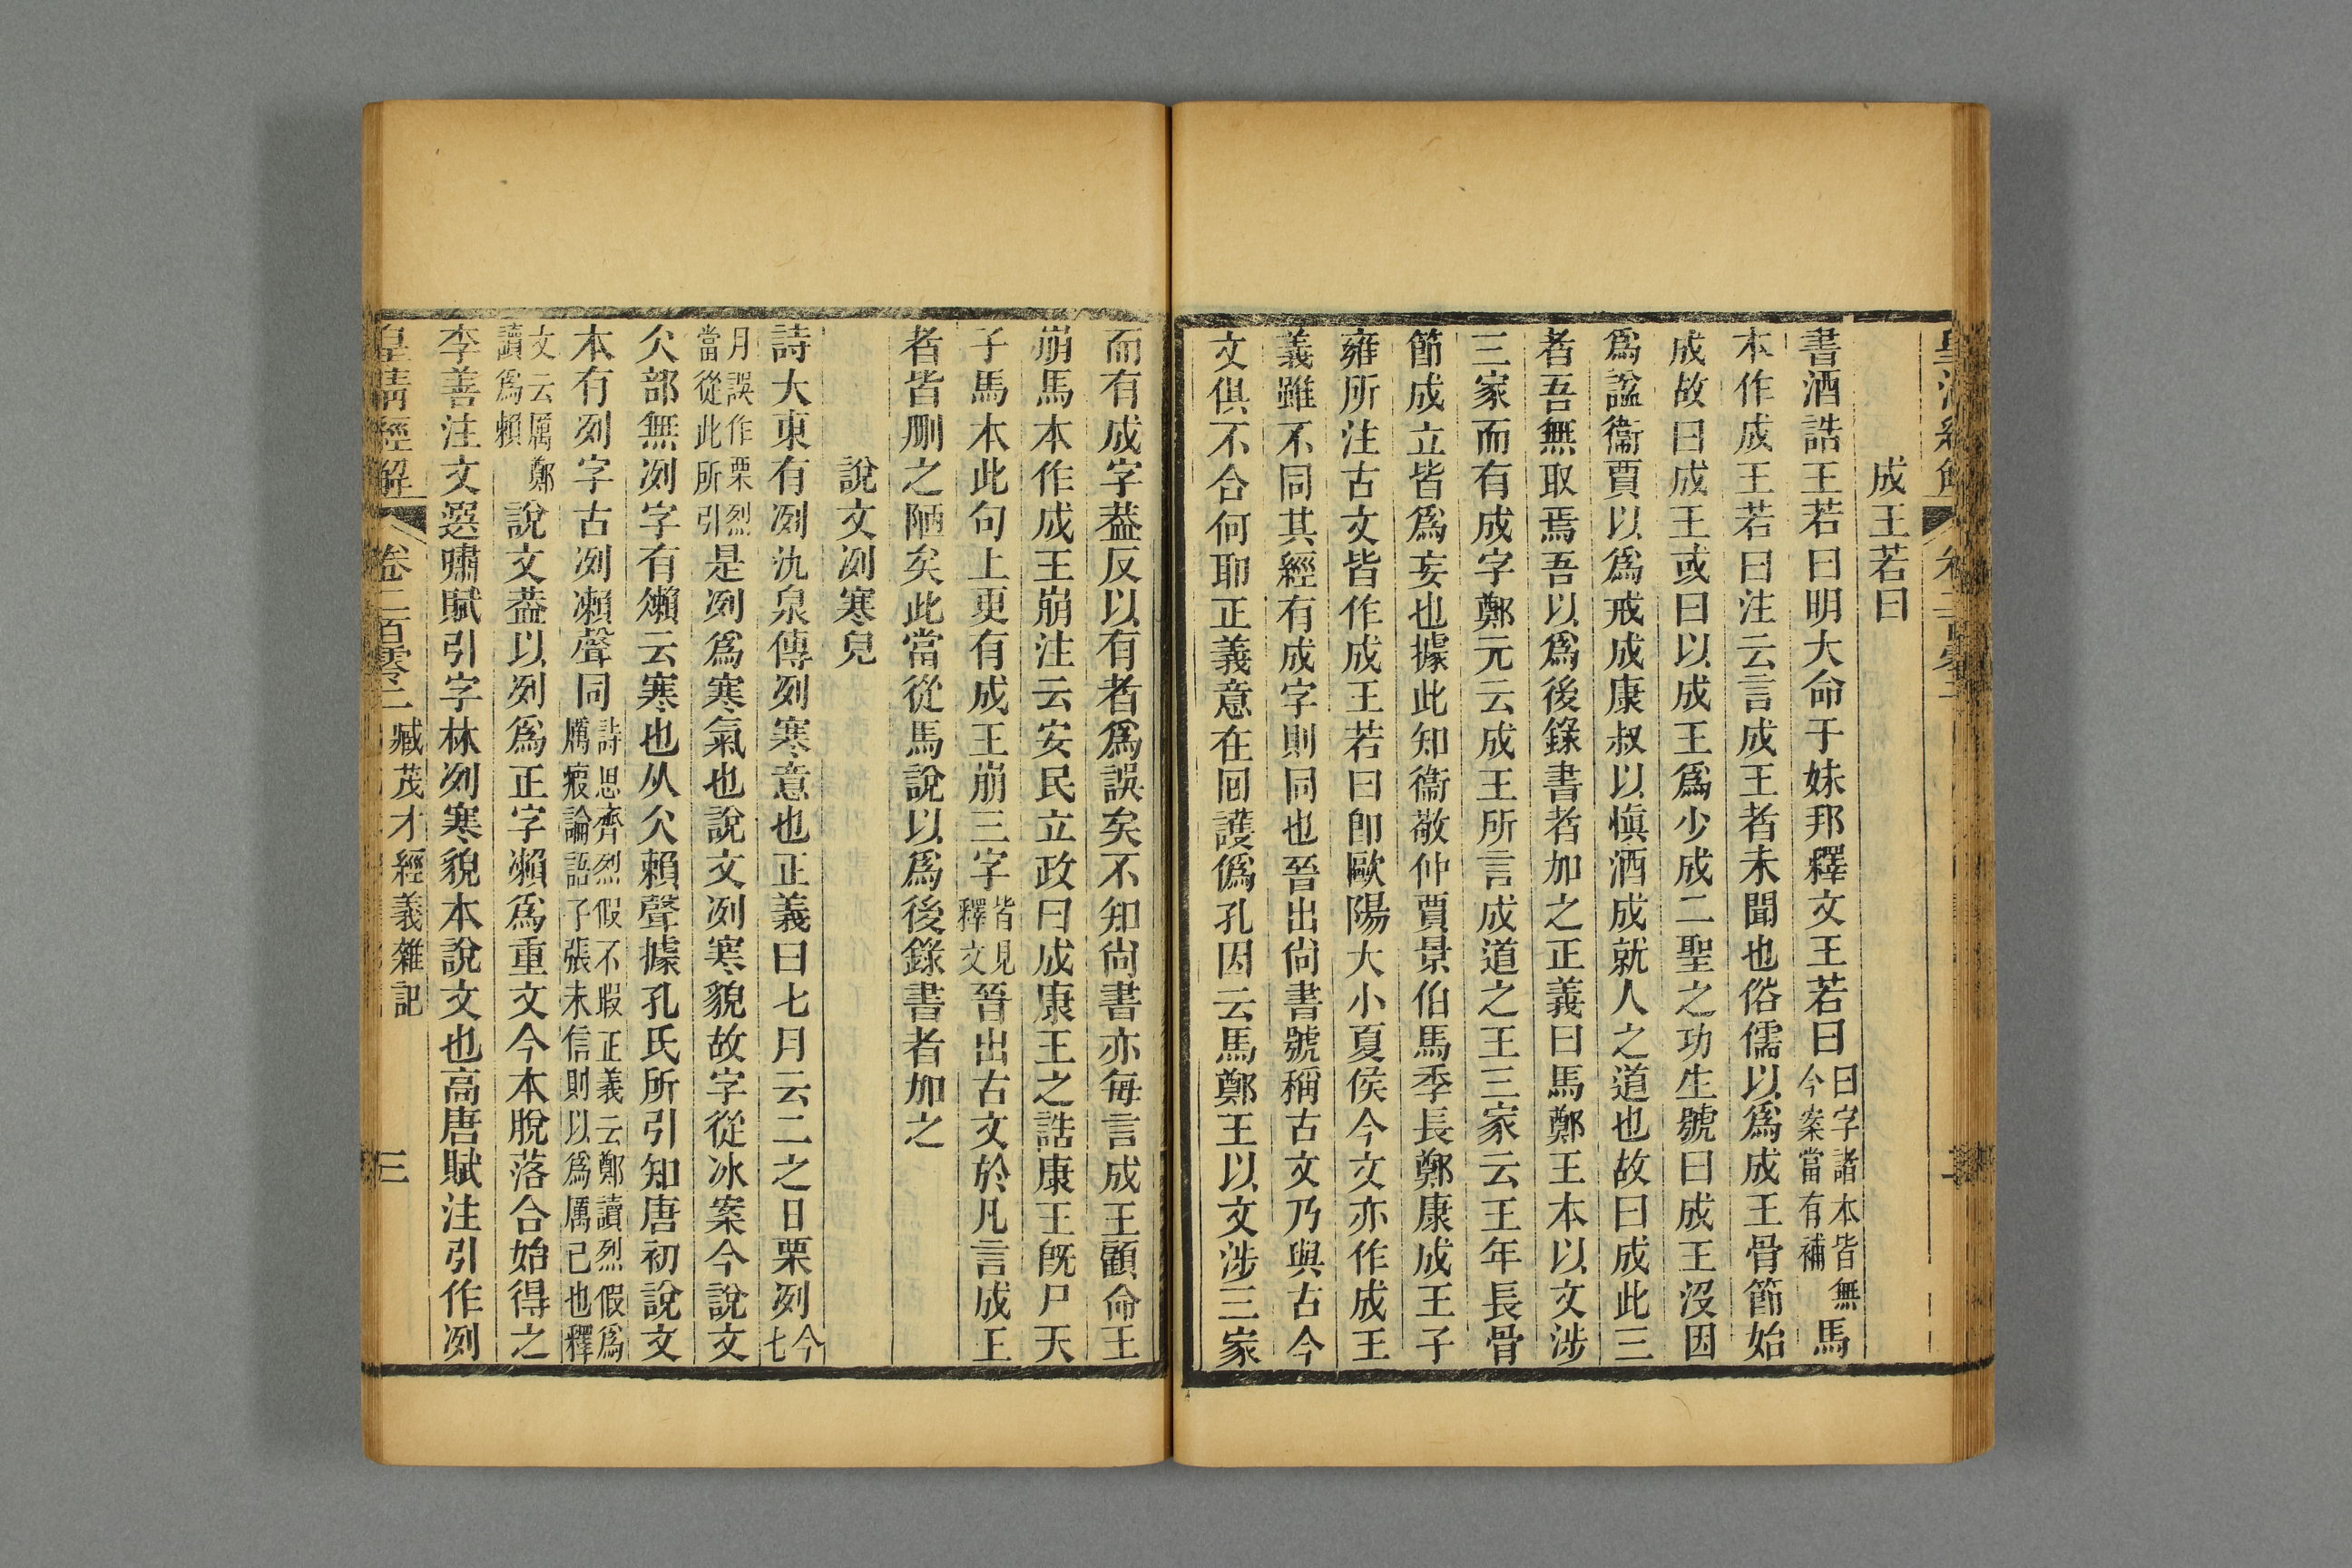 成王若曰
書酒誥王若曰明大命于妹邦釋文王若曰曰字諸本皆無今案當有補馬
本作成王若曰注云言成王者未聞也俗儒以爲成王骨節始
成故曰成王或曰以成王爲少成二聖之功生號曰成王沒因
爲諡衞賈以爲戒成康叔以愼酒成就人之道也故曰成此三
者吾無取焉吾以爲後錄書者加之正義曰馬鄭王本以文涉
三家而有成字鄭元云成王所言成道之王三家云王年長骨
節成立皆爲妄也據此知衞敬仲賈景伯馬季長鄭康成王子
雍所注古文皆作成王若曰卽歐陽大小夏侯今文亦作成王
義雖不同其經有成字則同也晉出尙書號稱古文乃與古今
文俱不合何耶正義意在回護僞孔因云馬鄭王以文涉三家
而有成字葢反以有者爲誤矣不知尙書亦每言成王顧命王
崩馬本作成王崩注云安民立政曰成康王之誥康王旣尸天
子馬本此句上更有成王崩三字皆見釋文晉出古文於凡言成王
者皆刪之陋矣此當從馬說以爲後錄書者加之
說文冽寒皃
詩大東有冽氿泉傳冽寒意也正義曰七月云二之日栗冽今七
月誤作栗烈當從此所引是冽爲寒氣也說文冽寒貌故字從冰案今說文
仌部無冽字有瀨云寒也从仌賴聲據孔氏所引知唐初說文
本有冽字古冽瀨聲同詩思齊烈假不瑕正義云鄭讀烈假爲厲瘕論語子張未信則以爲厲己也釋
文云厲鄭讀爲賴說文葢以冽爲正字瀨爲重文今本脫落合始得之
李善注文選嘯賦引字林冽寒貌本說文也高唐賦注引作冽
皇淸經解 卷二百零二 臧茂才經義雜記 三